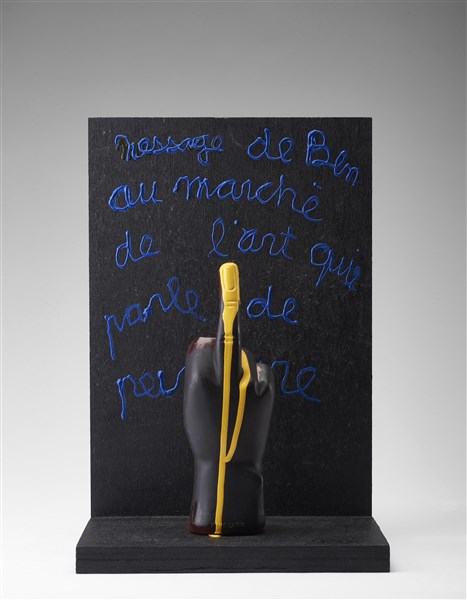 message de Ben
au marché
de l'art qui
parle de
pei re